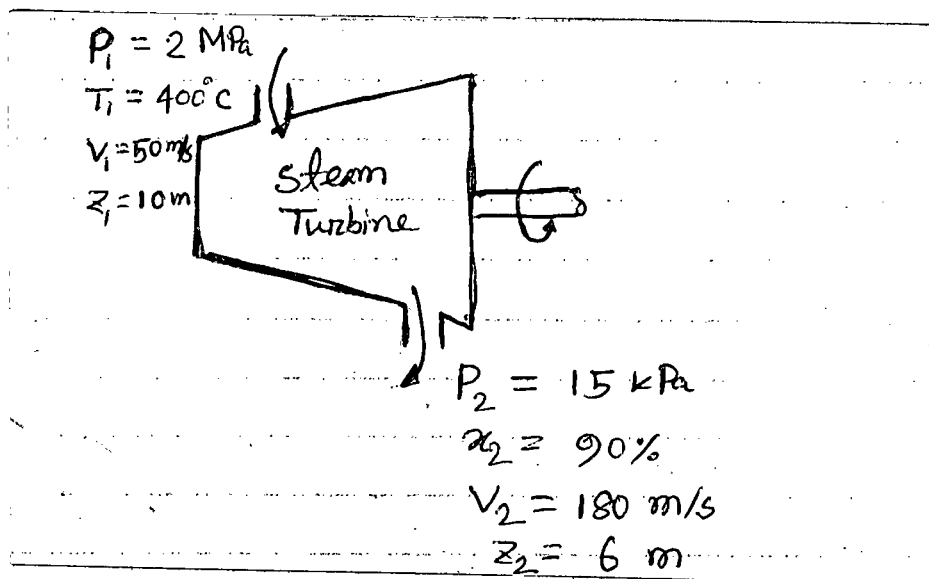 P₁ = 2 MPa
T₁ = 400°C
V₁ = 50 m/s
Z₁ = 10 m
Steam
Turbine
P₂ = 15 kPa
x₂ = 90%
V₂ = 180 m/s
Z₂ = 6 m